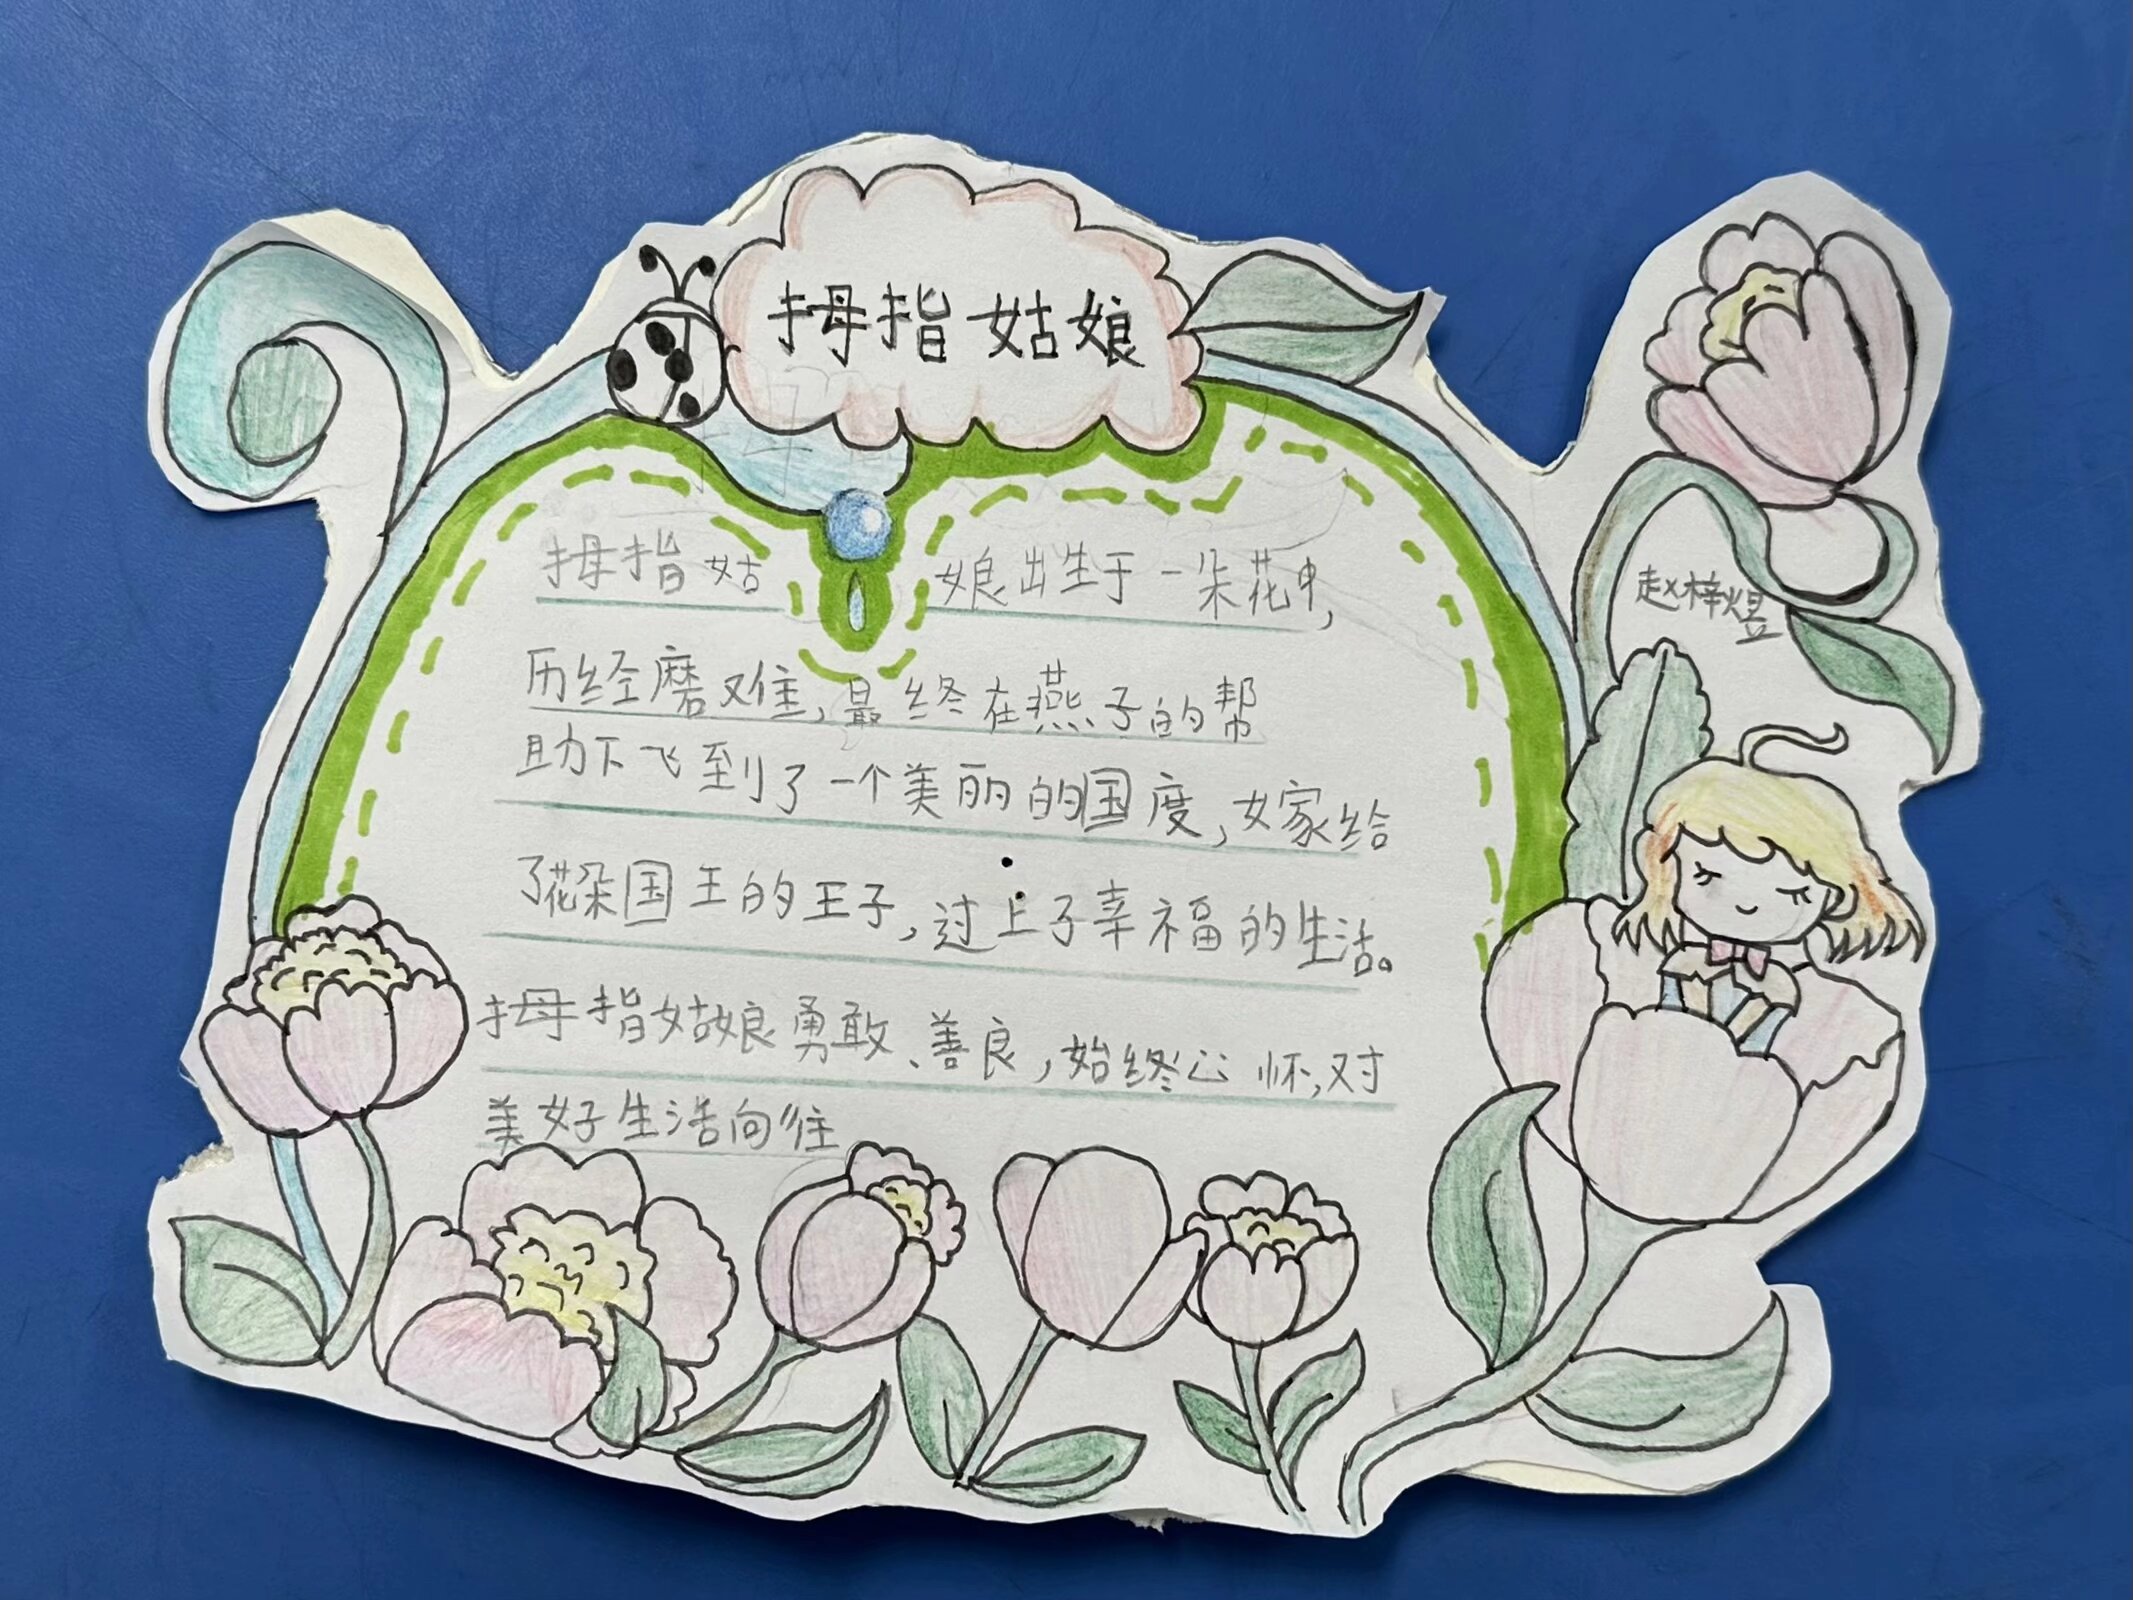 拇指姑娘
拇指姑娘出生于一朵花中,
历经磨难,最终在燕子的帮
助下飞到了一个美丽的国度,嫁给
了花朵国王的王子,过上了幸福的生活。
拇指姑娘勇敢、善良,始终心怀,对
美好生活向往
赵梓煜